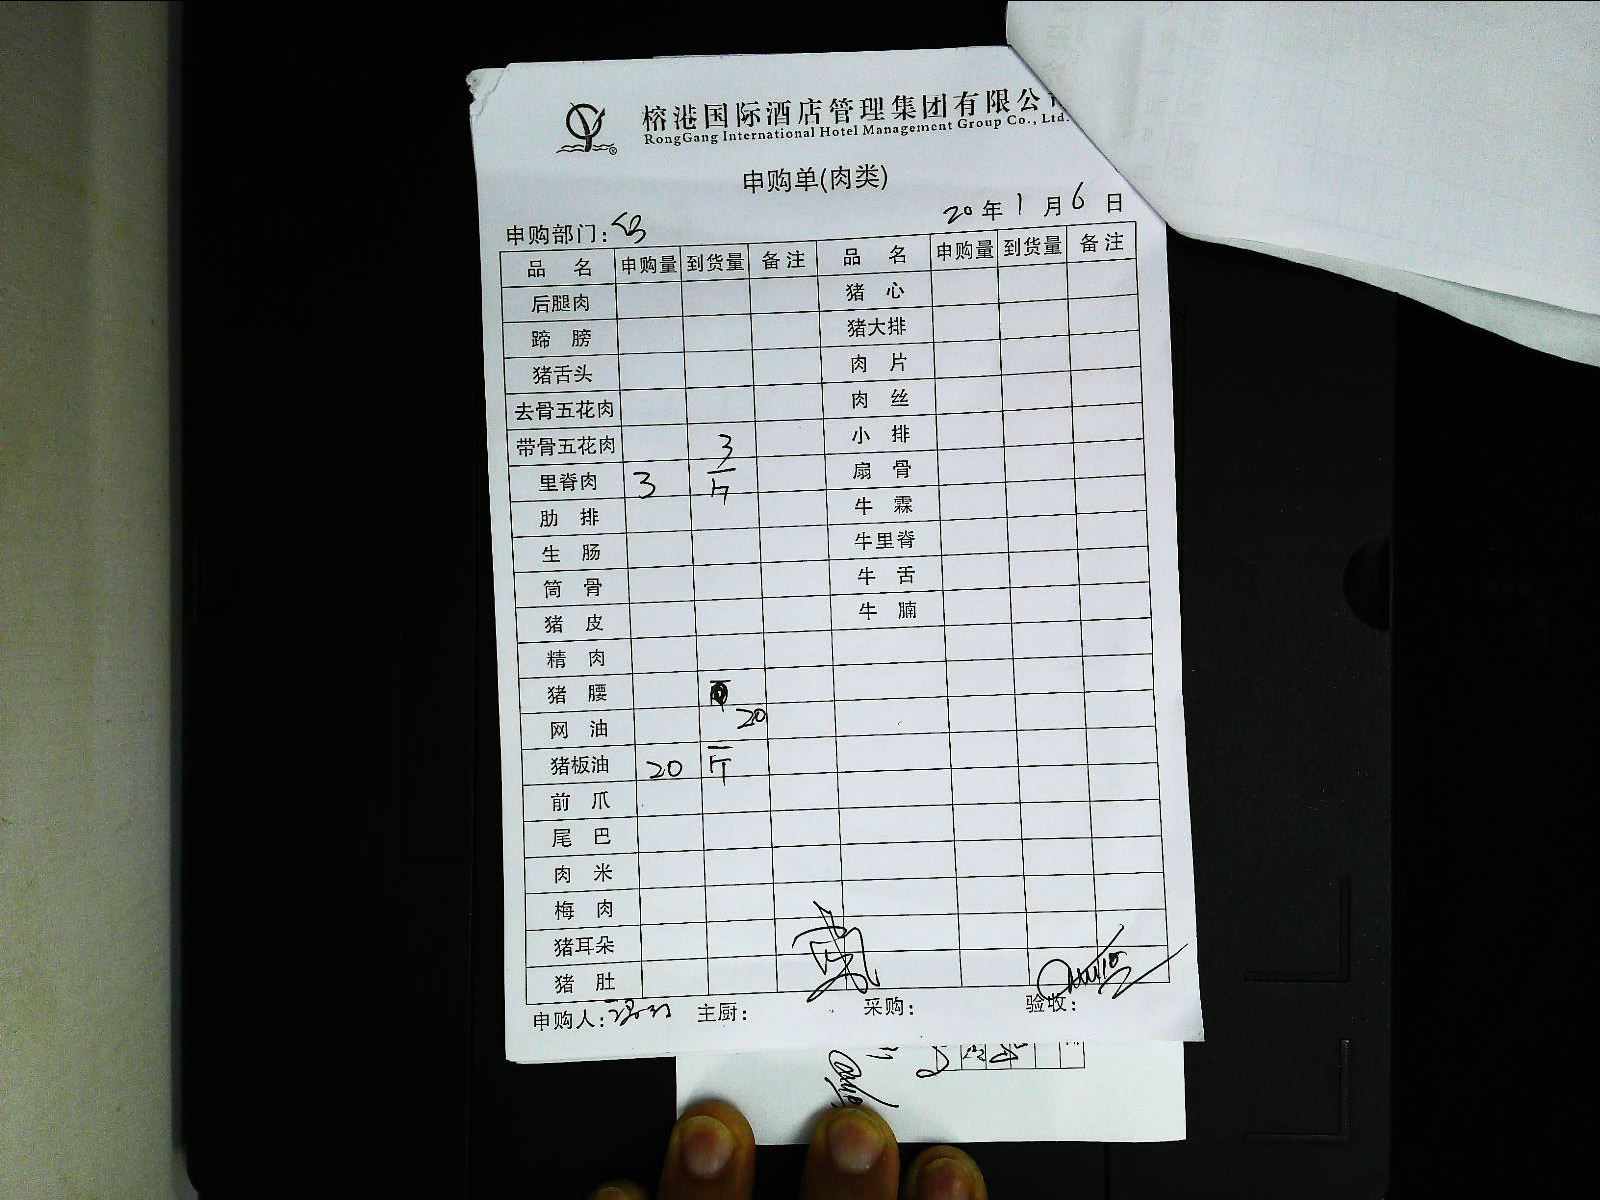 榕港国际酒店管理集团有限公
RongGang International Hotel Management Group Co., Ltd.
申购单(肉类)
20年1月6日
申购部门:
品 名 申购量 到货量 备注 品 名 申购量 到货量 备注
后腿肉 猪 心
蹄 膀 猪大排
猪舌头 肉 片
去骨五花肉 肉 丝
带骨五花肉 小 排
里脊肉 3 3斤 扇 骨
肋 排 牛 霖
生 肠 牛里脊
筒 骨 牛 舌
猪 皮 牛 腩
精 肉
猪 腰
网 油
猪板油 20 20斤
前 爪
尾 巴
肉 米
梅 肉
猪耳朵
猪 肚
申购人: 主厨: 采购: 验收: